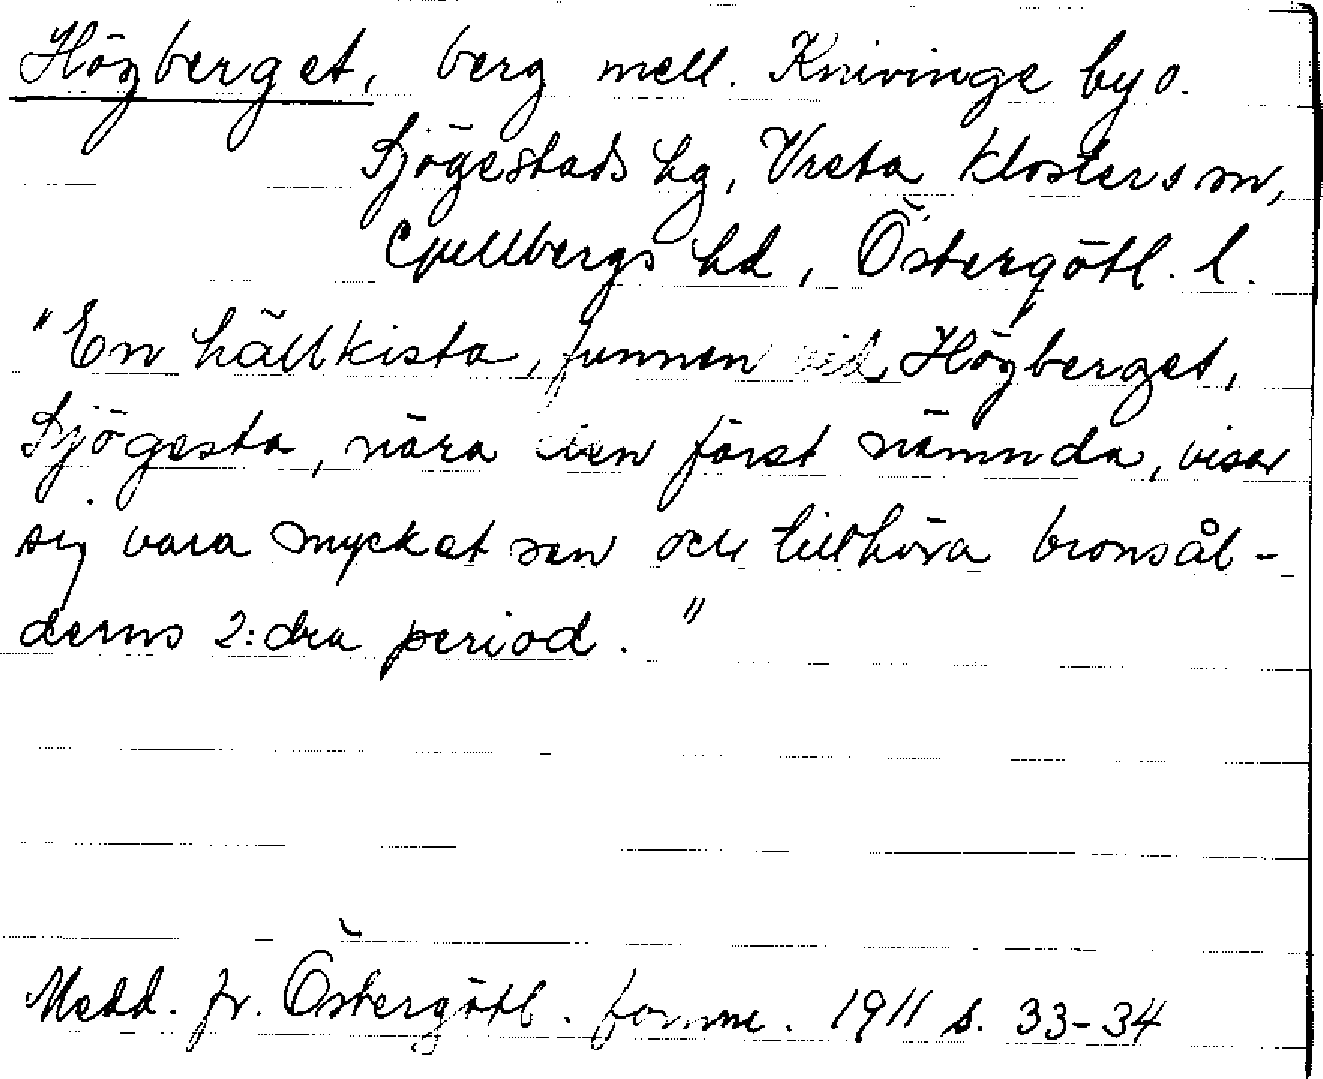 Högberget, berg mell. Knivinge by o.
Sjögestads hg, Vreta Klosters sn,
Gullbergs hd, Östergötl. l.
"En hällkista, funnen vid Högberget,
Sjögesta, nära den först nämnda, visar
sig vara mycket sen och tillhöra bronsål-
derns 2:dra period."
Medd. fr. Östergötl. fornm. 1911 s. 33-34